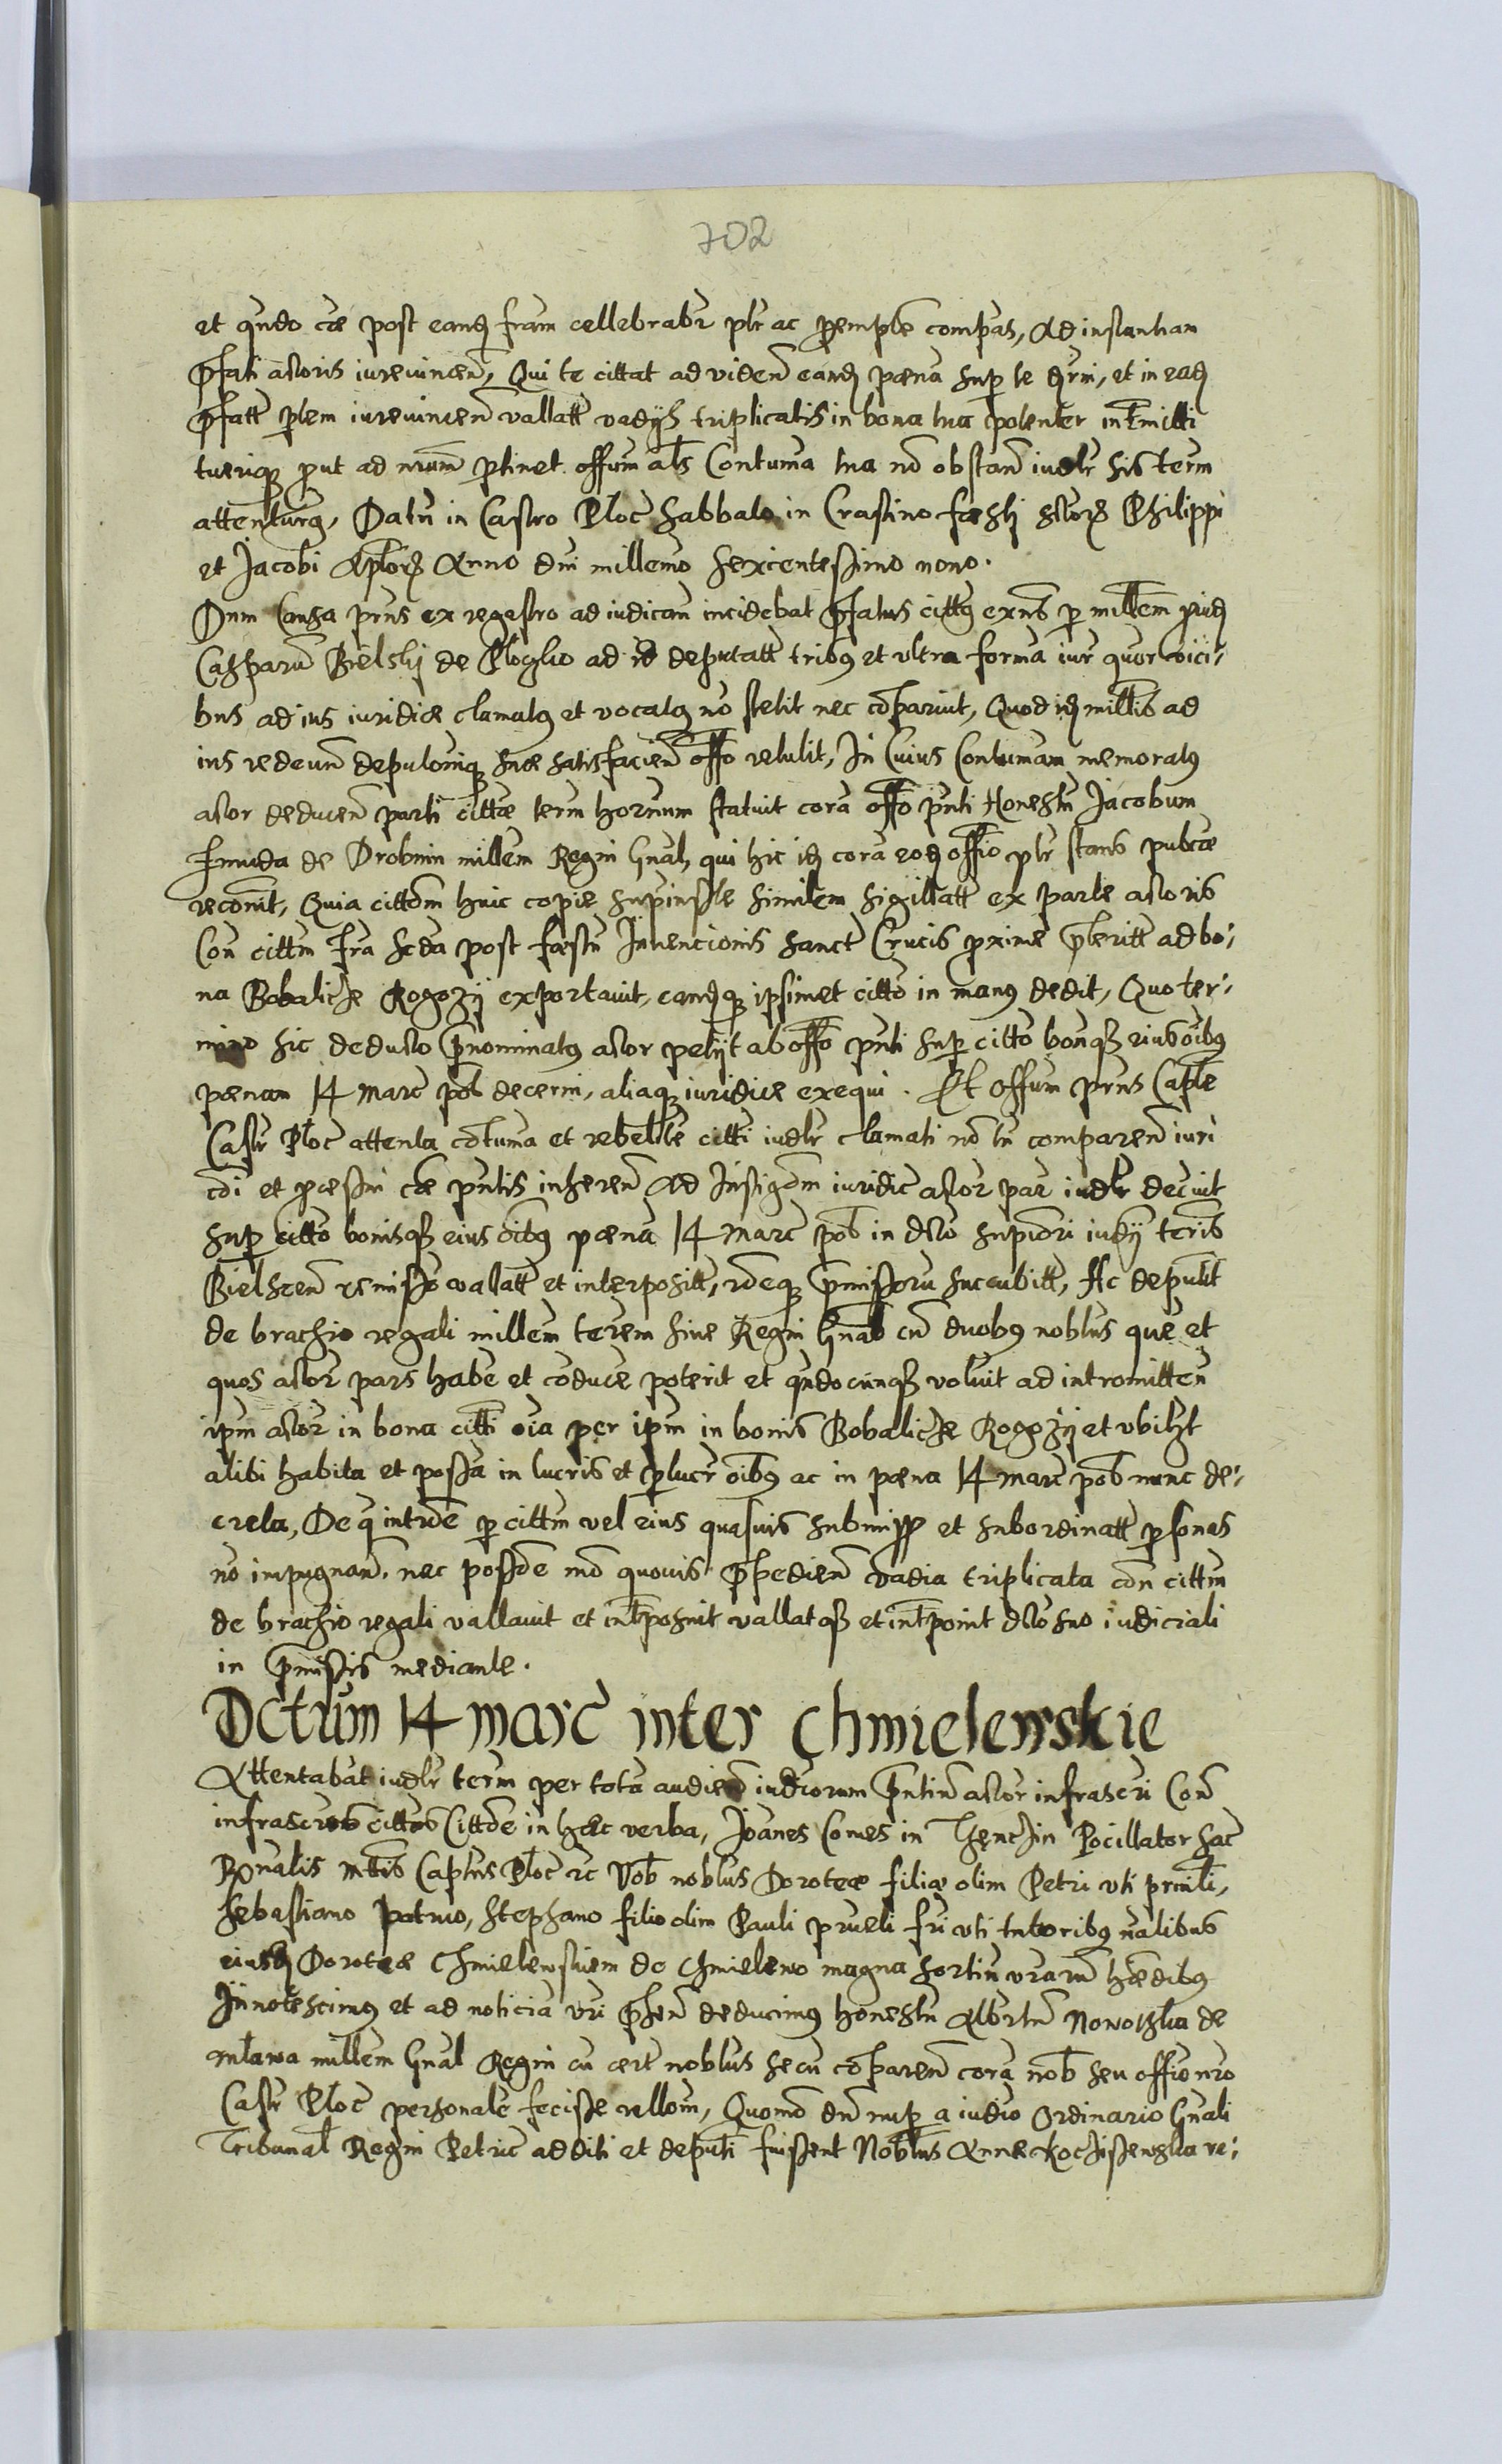 702
et qndo cæ post eandę fram cellebrabr plr ac peremple compas, Ad instantiam
pfati actoris iurevincen, Qui te cittat ad viden eandę pæna sup te decrni, et in eadę
pfatt ptem iurevincen vallatt vadijs triplicatis in bona tua potenter intmitti
tueriqz put ad nrum ptinet offum als Contuma tua no obstan iudlr sis term
attenturq, Datu in Castro Ploc sabbato in Crastino fæsti sctorę Philippi
et Jacobi Aplorę Anno dni millemo sexcentessimo nono.
Dum Causa pns ex regestro ad iudicam incidebat pfatus cittq exns p millem pvidę
Casparu Bielski de Ploczko ad id deputatt tribq et vltra forma iur quor voici-
bus ad ius iuridice clamatq et vocatq no stetit nec copariut, Quod idę millis ad
ius redeun deputoniqz suæ satisfacien offo retulit, In Cuius Contumam memoratq
actor deducen parti cittæ term hornum statuit cora offo pnti Honestu Jacobum
Fmuda de Drobnin millem Regni Gnal, qui hic idę cora eodę offio plr stans pubce
reconit, Quia cittom huic copiæ supinstæ similem sigillatt ex parte actoris
Con cittm fra scda post fæstu Inuencionis sanct Crucis proxime pteritt ad bo-
na Bobalicze Rogozij exportauit, eandęqz ipsimet citto in manq dedit, Quo ter-
mino sic deducto pnominatq actor petijt ab offo pnti sup citto bonqz eius oibq
pænam 14 marc pol decerni, aliaqz iuridice exequi. Et offum pns Captle
Castr Ploc attenta cotuma et rebellte citti iudlr clamati no tn comparen iuri
coi et pcæssui cæ pntis inhæren Ad Instigom iuridic actor par iudlr decuit
sup citto bonisqz eius oibq pæna 14 marc pol in dcto supiori iudij teris
Bielscen remisso valatt et interpositt, rôneqz pmissoru succubitt, Ac deputt
de brachio regali millem terem siue Regni Gnal cu duobq noblus que et
quos actor pars habe et coducere poterit et qndocunqz voluit ad intromitten
ipm actor in bona citti oia per ipm in bonis Bobalicze Rogozij et vbilzt
alibi habita et possa in lucris et plucr oibq ac in pæna 14 marc pol nunc de-
creta, De q intrôe p cittm vel eius quasuis submiss et subordinatt psonas
no impugnan. nec possôe mo quouis Præpedien vadia triplicata con cittm
de brachio regali vallauit et intposuit vallatqz et intponit dcto suo iudiciali
in pmissis mediante.
Dctrum 14 marc inter Chmielewskie
Attentabat iudlr term per tota audien iudiorum pntiu actor infrascri Con
infrascros cittos Cittoe in hæc verba, Joanes Comes in Tenczin Pocillator Sac
Rgnalis Mtis Captns Ploc rc Vob noblus Doroteæ filiæ olim Petri vti prnli,
Sebastiano patruo, Stephano filio olim Pauli prueli fri vti tutoribq nalibus
eiusdę Doroteæ Chmielewskiem de Chmielewo magna sortiu vraru hædibq
Innotescimq et ad noticia vri psen deducimq honestu Albrtu Nowoszka de
Mlawa millem Gnal Regni cu cert noblus secu coparen cora nob seu offio nro
Castr Ploc personale fecisse rellom, Quomo du nup a iudio Ordinario Gnali
Tribunal Regni Petric additi et deputi fuissent Noblus Annæ Koczissewska re-